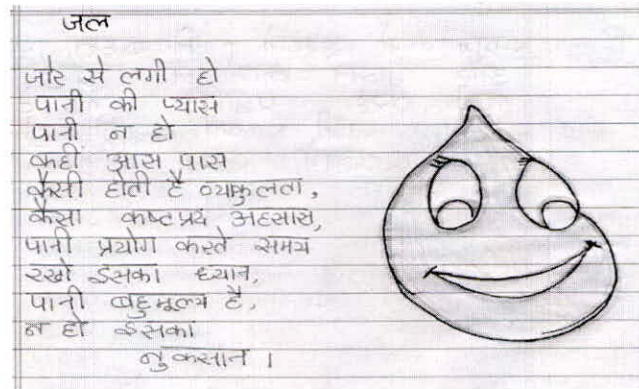 जल
जोर से लगी हो
पानी की प्यास
पानी न हो
कहीं आस पास
कैसी होती है व्याकुलता,
कैसा कष्टप्रद अहसास,
पानी प्रयोग करते समय
रखो इसका ध्यान,
पानी बहुमूल्य है,
न हो इसका
नुकसान ।